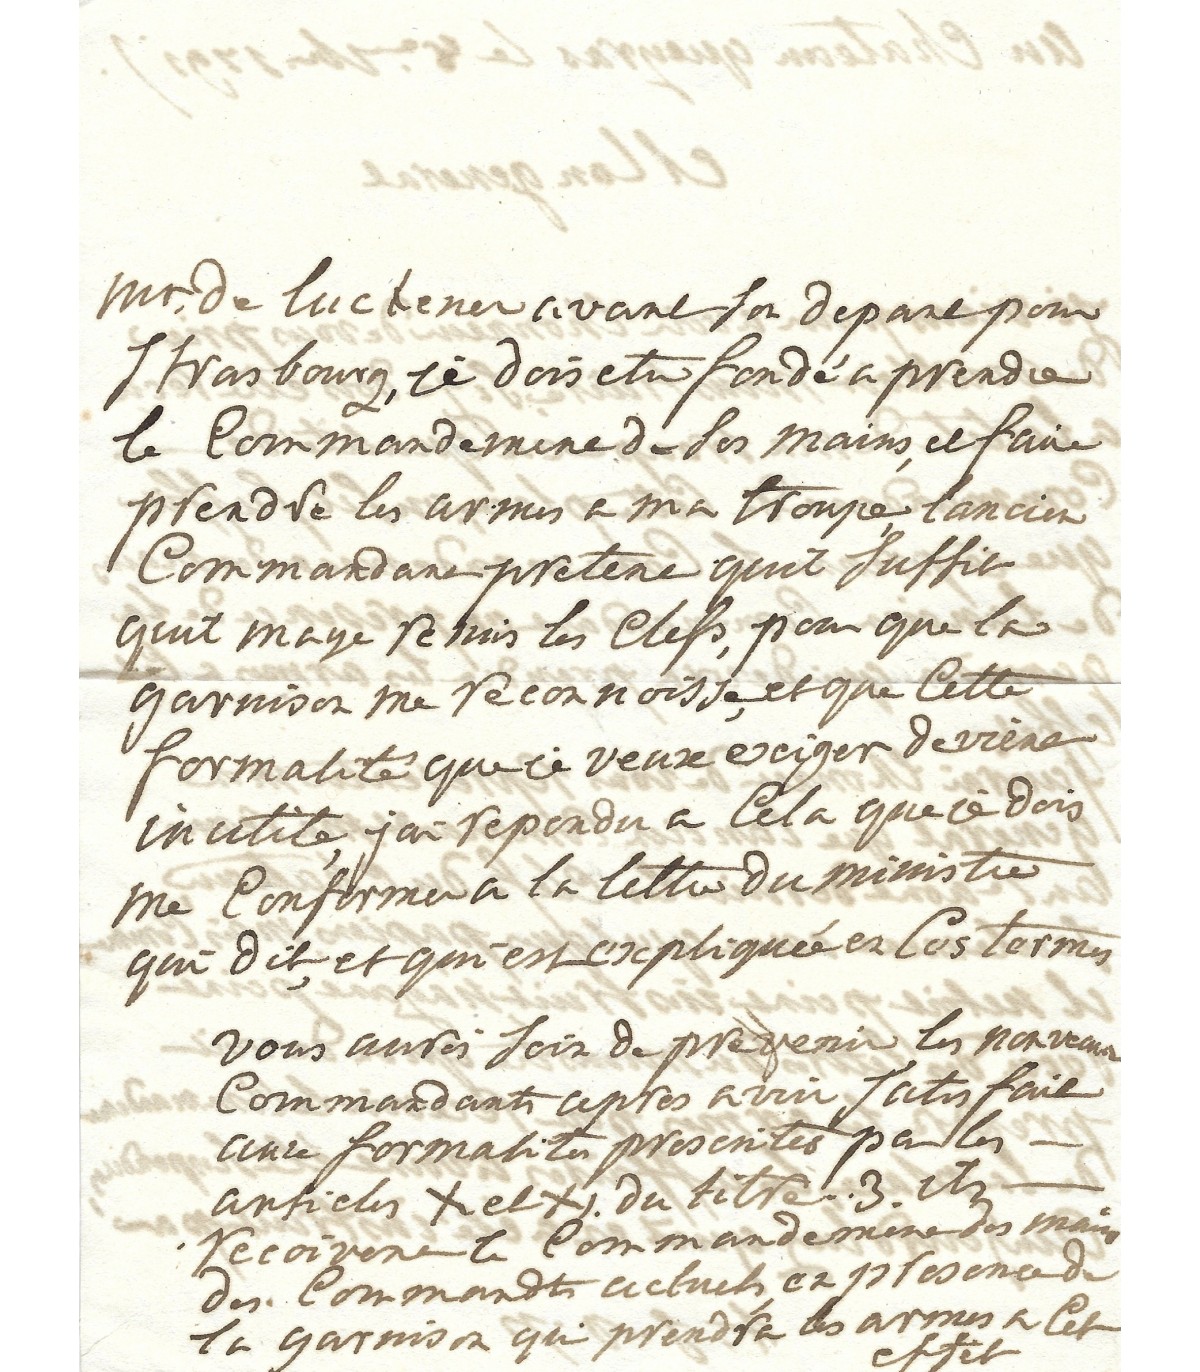 mr. de luckener avant son depart pour
strasbourg, je dois etre fondé a prendre
le Commandement de ses mains, et faire
prendre les armes a ma troupe, lancien
Commandant pretent quil suffit
quil maye remis les Clefs, pour que la
garnison me reconnoisse, et que Cette
formalité que je veux exiger devient
inutile, jai repondu a Cela que je dois
me Conformer a la lettre du ministre
qui dit, et qui est expliquée en Ces termes
vous aurés soin de prevenir les nouveaux
Commandants apres avoir satisfait
aux formalités prescrites par les
articles X et XI. du titre .. 3. ils
recoivent le Commandement des mains
des Commandts actuels, en presence de
la garnison qui prendra les armes a Cet
effet